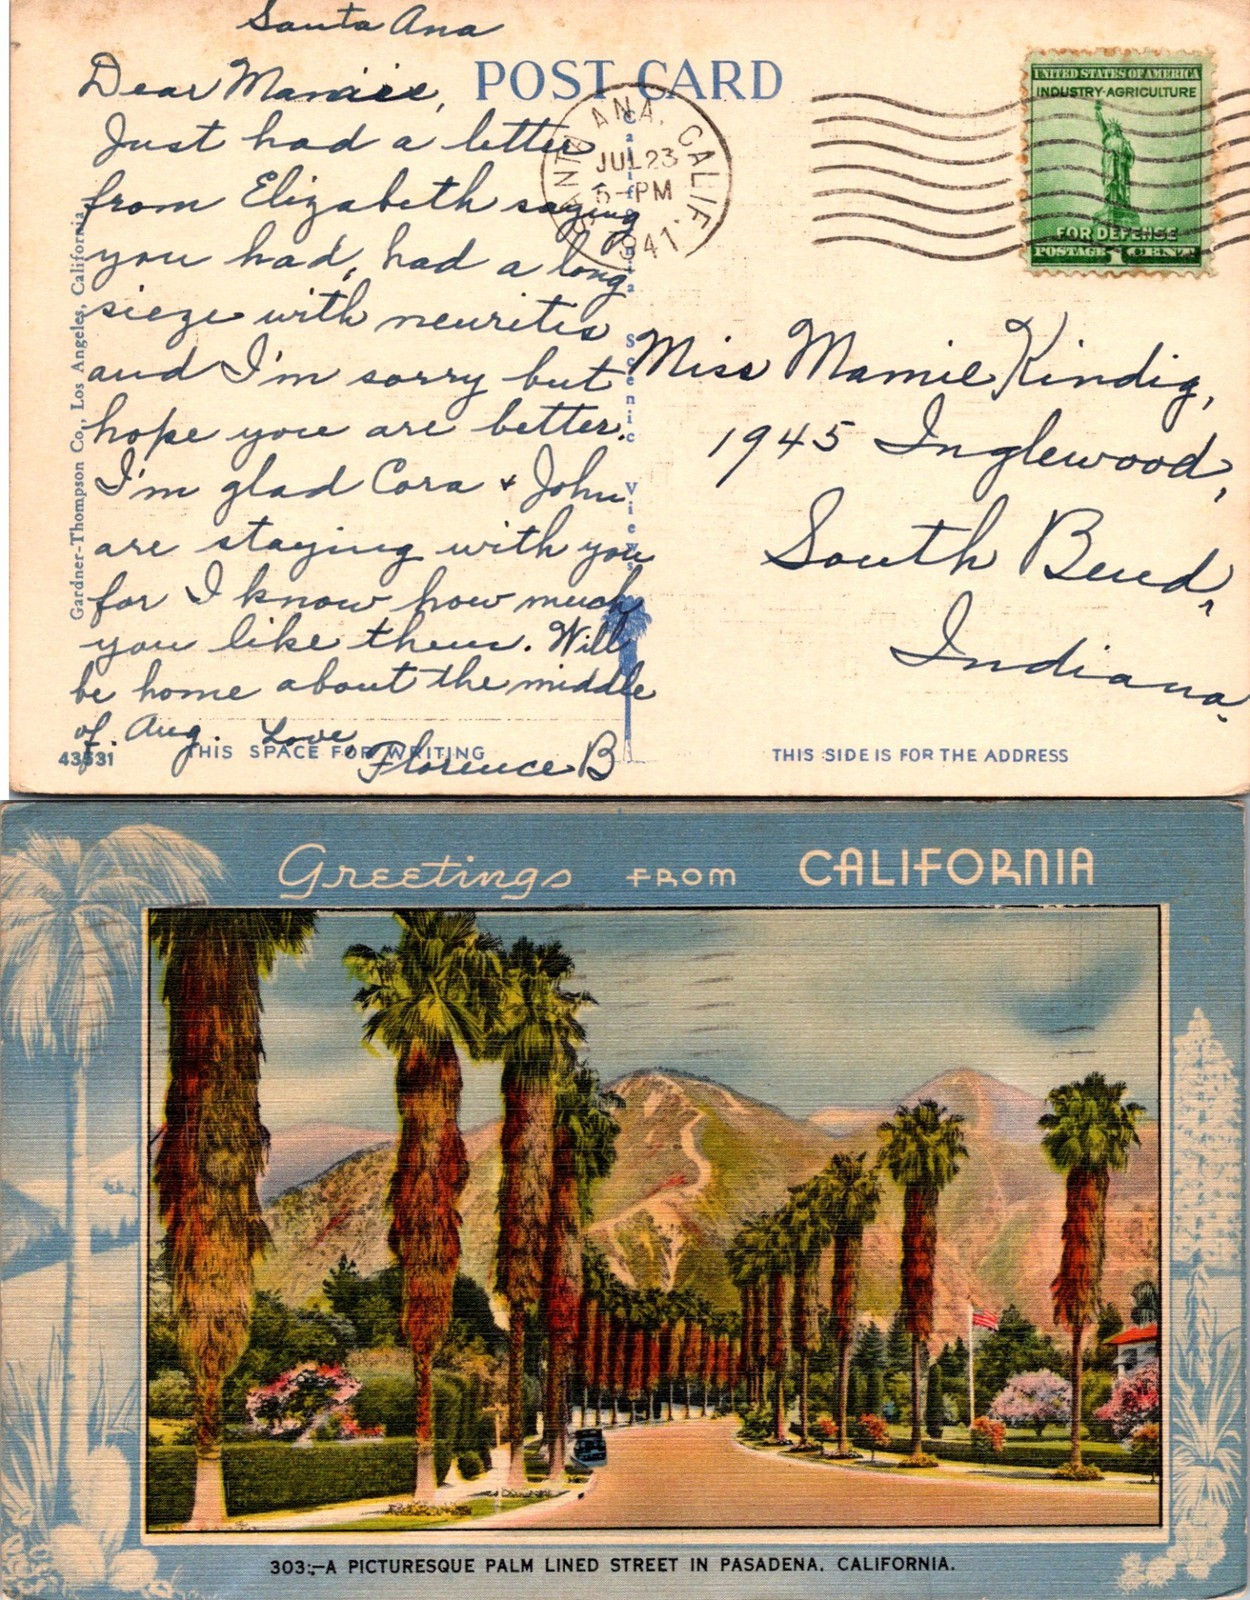 Santa Ana
Dear Mamie,
Just had a letter
from Elizabeth saying
you had, had a long
sieze with neuritis
and I'm sorry but
hope you are better.
I'm glad Cora + John
are staying with you
for I know how much
you like them. Will
be home about the middle
of Aug. Love
Florence B
POST CARD
SANTA ANA, CALIF.
JUL 23
5-PM
1941
UNITED STATES OF AMERICA
INDUSTRY-AGRICULTURE
FOR DEFENSE
POSTAGE 1 CENT
Miss Mamie Kindig,
1945 Inglewood,
South Bend,
Indiana.
Gardner-Thompson Co., Los Angeles, California
California Scenic Views
43531
THIS SPACE FOR WRITING
THIS SIDE IS FOR THE ADDRESS
Greetings FROM CALIFORNIA
303:-A PICTURESQUE PALM LINED STREET IN PASADENA, CALIFORNIA.